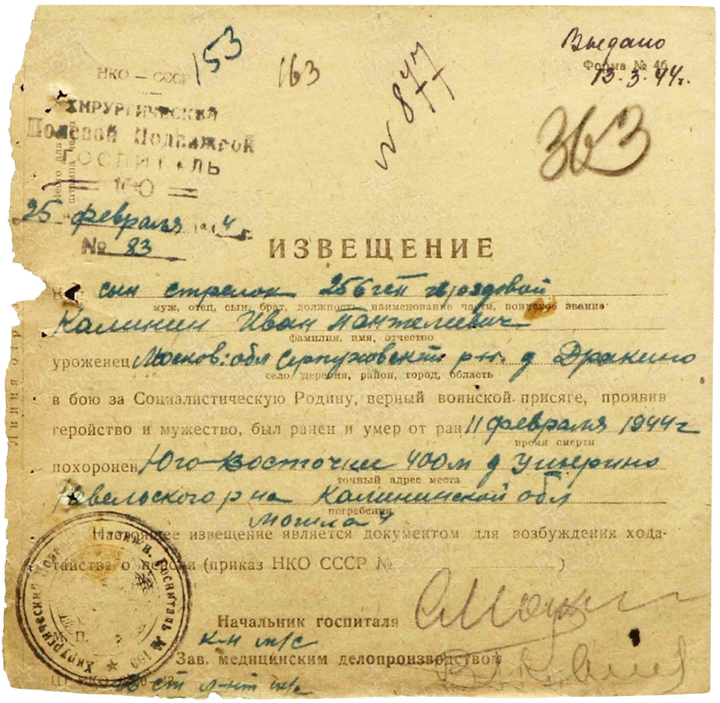 153
163
№ 877
Выдано
Форма № 4б
13.3.44г.
363
НКО — СССР
ХИРУРГИЧЕСКИЙ
Полевой Подвижной
ГОСПИТАЛЬ
25 февраля 1944 г.
№ 83
ИЗВЕЩЕНИЕ
сын стрелок 256 гсп гвардовой
муж, отец, сын, брат, должность, наименование части, воинское звание
Калинин Иван Пантелевич
фамилия, имя, отчество
уроженец Москов: обл Серпуховский р-н. д Дракино
село, деревня, район, город, область
в бою за Социалистическую Родину, верный воинской присяге, проявив
геройство и мужество, был ранен и умер от ран 11 февраля 1944 г
время смерти
похоронен Юго-Восточнее 400м д
точный адрес места
р-на Калининской обл
погребения
могила 4
Настоящее извещение является документом для возбуждения хода-
тайства о пенсии (приказ НКО СССР № )
Начальник госпиталя
к-н м/с
Зав. медицинским делопроизводством
ст л-нт м/с
Линия отр
Хирургический госпиталь №